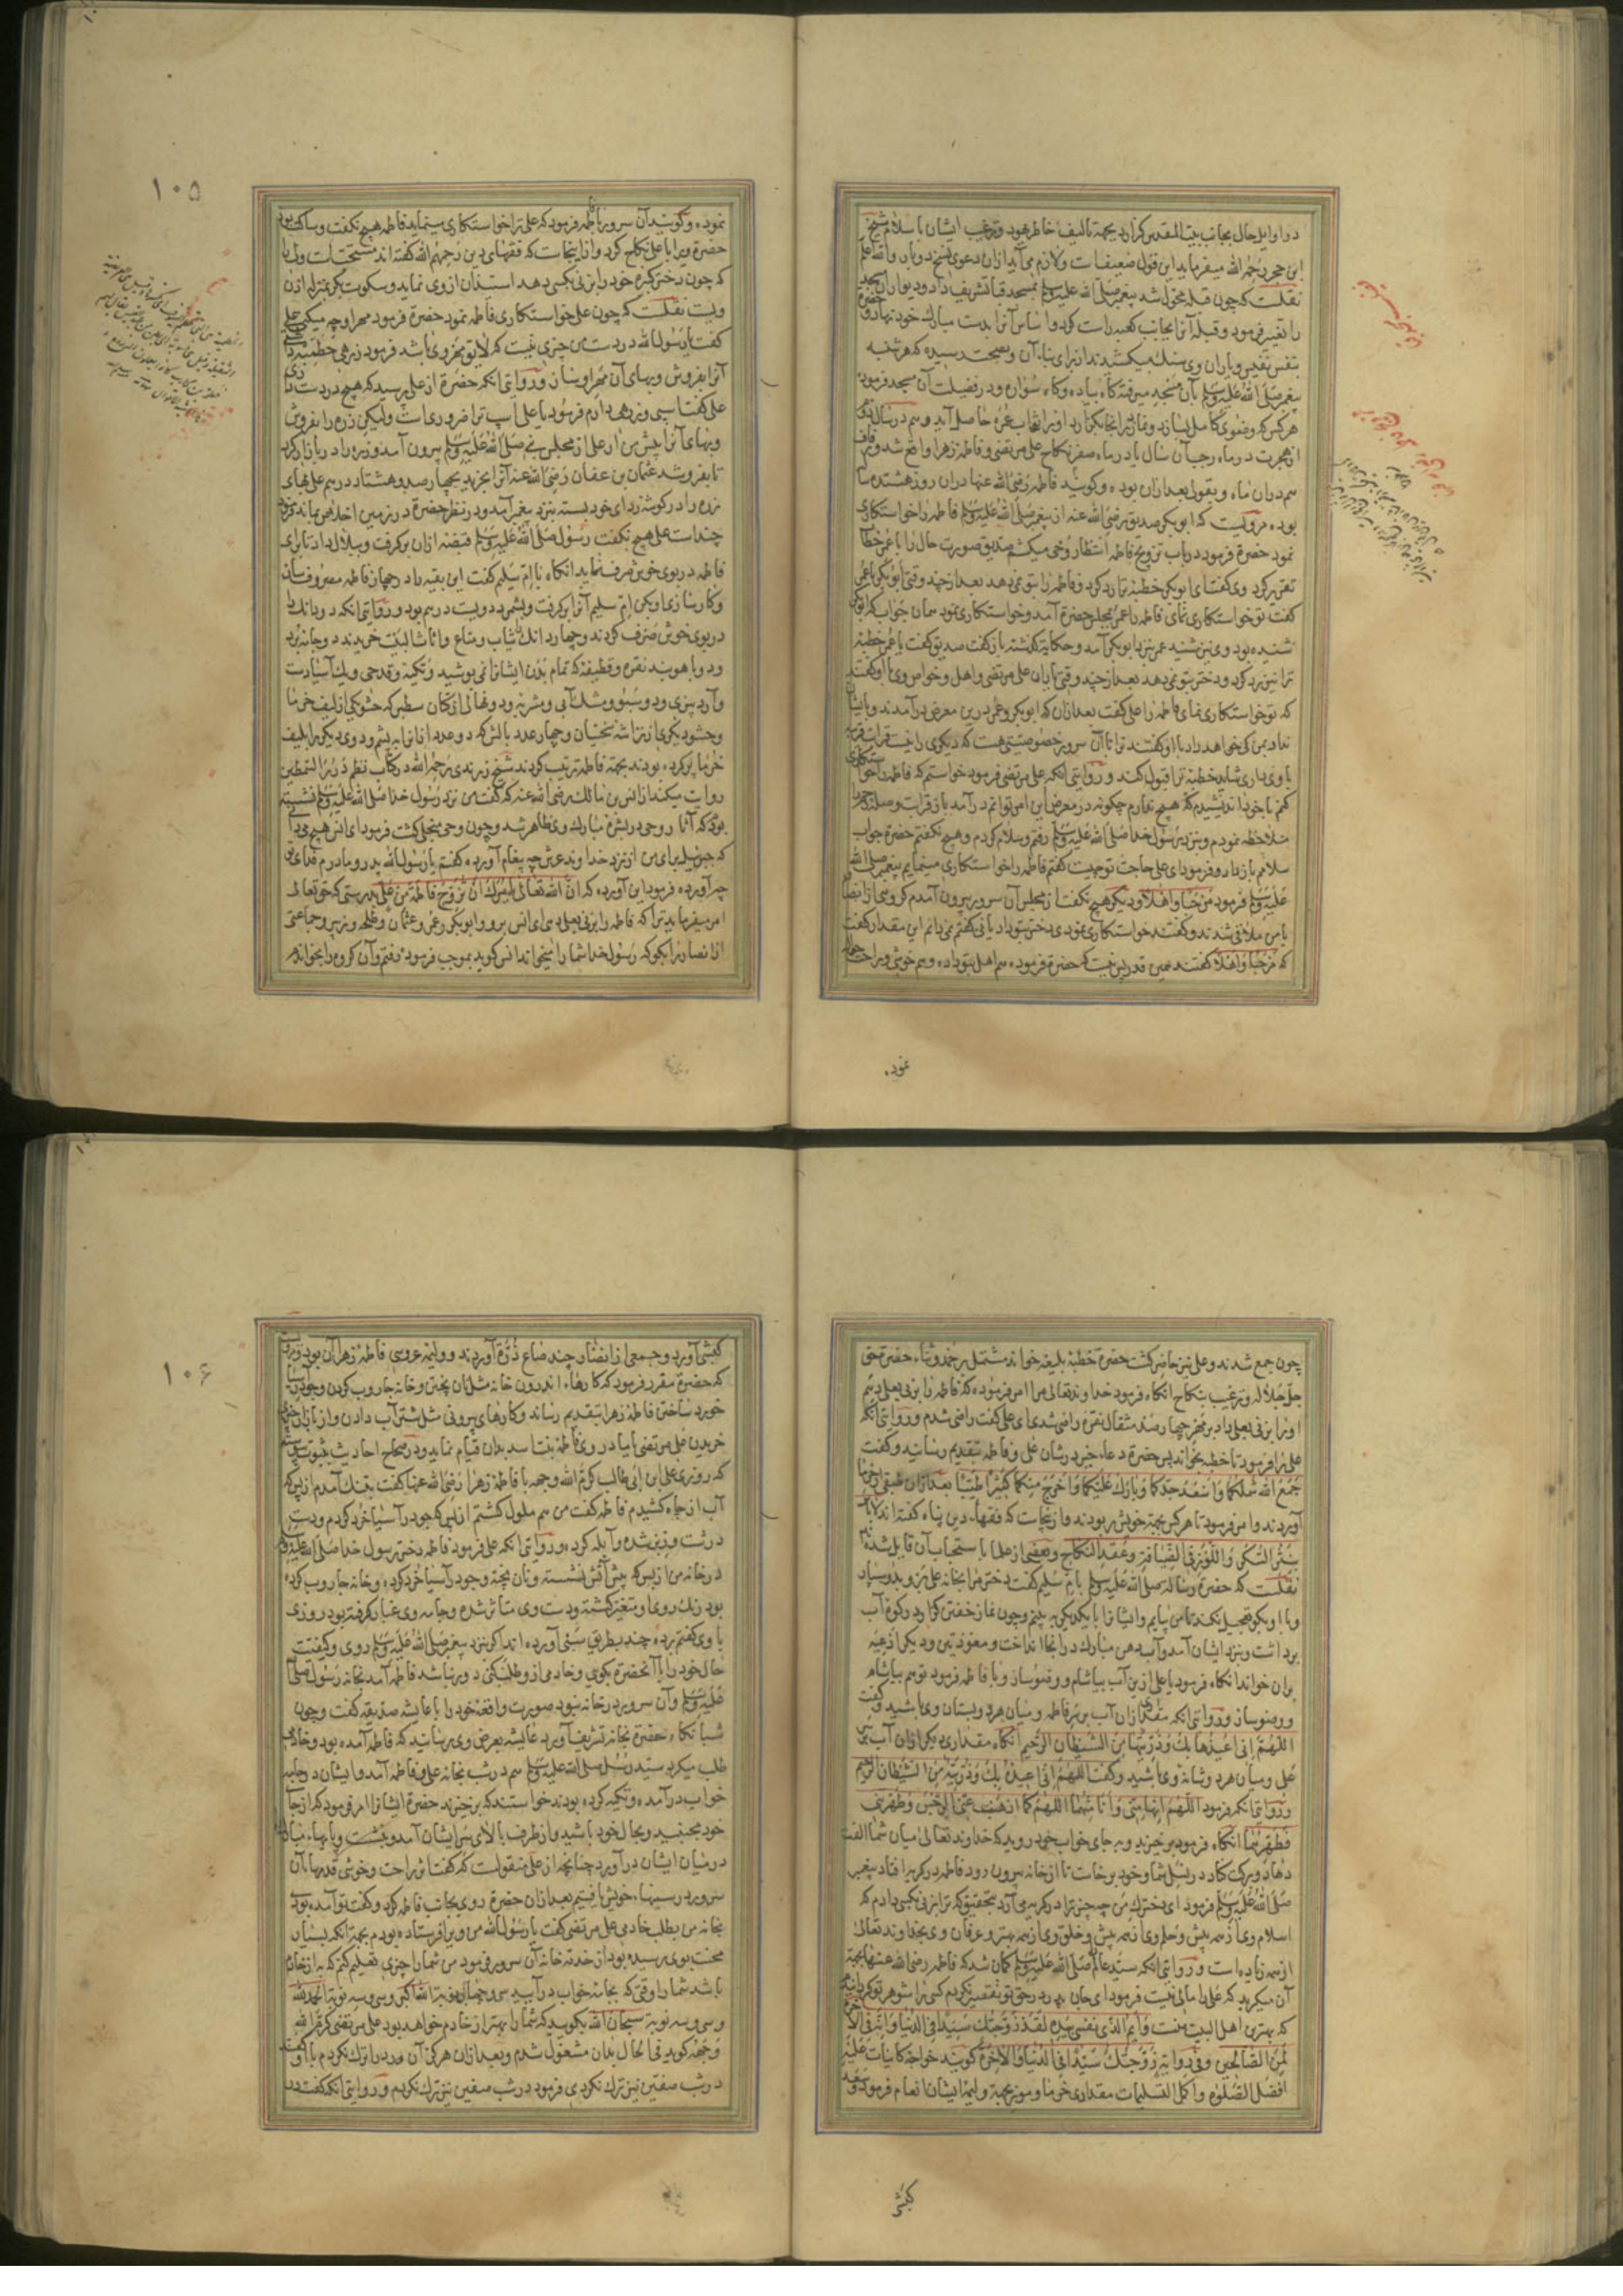 در اوایل حال بجانب بیت المقدس گزارد بجهة تالیف خاطر یهود و ترغیب ایشان باسلام شیخ
ابن حجر رحمه الله میفرماید این قول ضعیف است و لازم می آید از آن دعوی نسخ دو بار والله اعلم
نقلست که چون قبله محول شد پیغمبر صلی الله علیه وسلم بمسجد قبا تشریف داد و دیوار آن مسجد
را تغییر فرمود و قبله آنرا بجانب کعبه راست کرد و اساس آنرا بدست مبارک خود نهاد و
بنفس نفیس و یاران وی سنگ میکشیدند از برای بناء آن و بصحت رسیده که هر شنبه
پیغمبر صلی الله علیه وسلم بآن مسجد میرفت گاه پیاده و گاه سواره و در فضیلت آن مسجد فرمود
هر کس که وضوی کامل بسازد و نماز در آنجا بگزارد او را ثواب عمره حاصل آید و هم در سال دوم
از هجرت در ماه رجب آن سال یا در ماه صفر نکاح علی مرتضی و فاطمه زهرا واقع شد و زفاف
هم در آن ماه و بقولی بعد از آن بوده و گویند فاطمه رضی الله عنها در آن روز هشتده ساله
بوده مرویست که ابوبکر صدیق رضی الله عنه از پیغمبر صلی الله علیه وسلم فاطمه را خواستگاری
نمود حضرة فرمود در باب تزویج فاطمه انتظار وحی میکشم صدیق صورت حال را با عمر خطاب
تقریر کرد وی گفت ای ابوبکر خطبه ترا رد کرد و فاطمه را بتو نمی دهد بعد از چند وقتی ابوبکر با عمر
گفت تو خواستگاری نمای فاطمه را عمر بمجلس حضرة آمد و خواستگاری نمود همان جواب که ابوبکر
شنیده بود وی نیز شنید عمر نزد ابوبکر آمد و حکایت گذشته باز گفت صدیق گفت یا عمر خطبه
ترا نیز رد کرد و دختر بتو نمی دهد بعد از چند وقتی یاران علی مرتضی و اهل و خواص وی با او گفتند
که تو خواستگاری نمای فاطمه را علی گفت بعد از آن که ابوبکر و عمر درین معرض در آمدند و بایشان
نداد بمن کی خواهد داد با او گفتند ترا با آن سرور خصوصیتی هست که دیگری را نیست قرابت قریبه
با وی داری شاید خطبه ترا قبول کند و روایتی آنکه علی مرتضی فرمود خواستم که فاطمه را خواستگاری
کنم با خود اندیشیدم که هیچ ندارم چگونه در معرض این امر توانم در آمد باز قرابت و صله رحم را
ملاحظه نمودم و نزد رسول خدا صلی الله علیه وسلم رفتم و سلام کردم و هیچ نگفتم حضرة جواب
سلام باز داد و فرمود ای علی حاجت تو چیست گفتم فاطمه را خواستگاری مینمایم پیغمبر صلی الله
علیه وسلم فرمود مرحبا و اهلا و دیگر هیچ نگفت از مجلس آن سرور بیرون آمدم گروهی از انصار
با من ملاقی شدند و گفتند خواستگاری نمودی دختر بتو داد یا نی گفتم نمی دانم این مقدار گفت
که مرحبا و اهلا گفتند همین قدر بس نیست که حضرة فرموده هم اهل بتو داده و هم خوشی و راحت حواله
نموده
۱۰۵
نموده و گویند آن سرور با فاطمه فرمود که علی ترا خواستگاری مینماید فاطمه هیچ نگفت و ساکت بود
حضرة ویرا با علی نکاح کرد و از اینجاست که فقهای دین رحمهم الله گفته اند مستحبست ولی را
که چون دختر بکره خود را بزنی بکسی دهد استیذان از وی نماید و سکوت بکر بمنزله اذن
ویست نقلست که چون علی خواستگاری فاطمه نمود حضرة فرمود مهر او چه میکنی علی
گفت یا رسول الله در دست من چیزی نیست که لایق مهر وی باشد فرمود زرهی حطمیه داشتی
آنرا بفروش و بهای آن مهر او ساز و روایتی آنکه حضرة از علی پرسید که هیچ در دست داری
علی گفت اسپی و زرهی دارم فرمود یا علی اسپ ترا ضروری است ولیکن زره را بفروش
و بهای آنرا پیش من آر علی از مجلس نبی صلی الله علیه وسلم بیرون آمد و زره را در بازار کرد
تا بفروشد عثمان بن عفان رضی الله عنه آنرا بخرید بچهارصد و هشتاد درم علی بهای
زره را در گوشه ردای خود بسته نزد پیغمبر آمد و در نظر حضرة در زمین اخلاص نهاد فرمود
چند است علی هیچ نگفت رسول صلی الله علیه وسلم قبضه از آن برگرفت و ببلال داد تا برای
فاطمه در بوی خوش صرف نماید آنگاه با ام سلیم گفت این بقیه را در جهاز فاطمه مصروف ساز
و کارسازی او بکن ام سلیم آنرا برگرفت و بشمرد دویست درم بود و روایتی آنکه دو دانگ را
در بوی خوش صرف کردند و چهار دانگ در ثیاب و متاع و اثاث البیت خریدند دو جامه برد
و دو بازوبند نقره و قطیفه که تمام بدن ایشانرا نمی پوشید و تکیه و قدحی و یک آسیادست
و آرد بیزی و دو سبو و مشک آبی و مشربه و دو نهالی از کتان سطبر که حشو یکی از لیف خرما
و حشو دیگری از تراشه تختیان و چهار عدد بالش که دو عدد از آنرا به پشم و دوی دیگر را بلیف
خرما پر کرده بودند بجهة فاطمه ترتیب کردند شیخ زرندی رحمه الله در کتاب نظم درر السمطین
روایت میکند از انس بن مالک رضی الله عنه که گفت من نزد رسول خدا صلی الله علیه وسلم نشسته
بودم که آثار وحی در بشره مبارک وی ظاهر شد و چون وحی منجلی گشت فرمود ای انس هیچ میدانی
که جبرئیل برای من از نزد خداوند عرش چه پیغام آورده گفتم یا رسول الله پدر و مادرم فدای تو
چه آورده فرمود این آورده که ان الله تعالی یأمرک ان تزوج فاطمة من علی بدرستی که حق تعالی
امر میفرماید ترا که فاطمه را بزنی بعلی دهی ای انس برو و ابوبکر و عمر و عثمان و طلحه و زبیر و جماعتی
از انصار را بگو که رسول خدا شما را میخواند انس گوید بموجب فرموده رفتم و آن گروه را بخواندم
چون جمع شدند و علی نیز حاضر گشت حضرة خطبه بلیغه خواند مشتمل بر حمد و ثناء حضرة حق
جل جلاله و ترغیب بنکاح آنگاه فرمود خداوند تعالی مرا امر فرموده که فاطمه را بزنی بعلی دهم
او را بزنی بعلی دادم بر مهر چهارصد مثقال نقره راضی شدی ای علی گفت راضی شدم و روایتی آنکه
علی را فرمود تا خطبه بخواند پس حضرة دعاء خیر در شان علی و فاطمه بتقدیم رسانید و گفت
جمع الله شملکما و اسعد جدکما و بارک علیکما و اخرج منکما کثیرا طیبا بعد از آن طبقی خرما
آوردند و امر فرمود تا هر کس بجهة خویش ربودند و از اینجاست که فقهاء دین پناه گفته اند لا باس
بنثر السکر و اللوز فی الضیافة و عقد النکاح و بعضی از علما باستحباب آن قایل شده اند
نقلست که حضرة رسالة صلی الله علیه وسلم با ام سلیم گفت دختر مرا بخانه علی بر و بدو سپار
و با او بگو تعجیل نکند تا من بیایم و ایشانرا با یکدیگر به بینم و چون نماز خفتن گزارد رکوه آب
برداشت و نزد ایشان آمد و آب دهن مبارک در آنجا انداخت و معوذتین و دیگر ادعیه
بر آن خواند آنگاه فرمود یا علی ازین آب بیاشام و وضو ساز و با فاطمه فرمود تو هم بیاشام
و وضو ساز و روایتی آنکه مقداری از آن آب بر سر فاطمه و میان هر دو پستان وی پاشید و گفت
اللهم انی اعیذها بک و ذریتها من الشیطان الرجیم آنگاه مقداری دیگر از آن آب بر سر
علی و میان هر دو شانه وی پاشید و گفت اللهم انی اعیذه بک و ذریته من الشیطان الرجیم
و روایتی آنکه فرمود اللهم انها منی و انا منهما اللهم کما اذهبت عنی الرجس و طهرتنی
فطهرهما آنگاه فرمود برخیزید و به جای خواب خود روید که خداوند تعالی میان شما الفت
دهاد و برکت کناد در نسل شما و خود برخاست تا از خانه بیرون رود فاطمه در گریه افتاد پیغمبر
صلی الله علیه وسلم فرمود ای دخترک من چه چیز ترا در گریه می آرد بتحقیق که ترا بزنی بکسی دادم که
اسلام وی از همه پیش و حلم وی از همه بیش و خلق وی از همه بهتر و عرفان وی بخداوند تعالی
از همه زیاده است و روایتی آنکه سید عالم صلی الله علیه وسلم گمان شد که فاطمه رضی الله عنها بجهة
آن میگرید که علی را مالی نیست فرمود ای جان پدر در حق تو تقصیر نکردم کسی را شوهر تو گردانیدم
که بهترین اهل البیت منست و ایم الذی نفسی بیده لقد زوجتک سیدا فی الدنیا و انه فی الآخرة
لمن الصالحین و فی روایة زوجتک سیدا فی الدنیا و الآخرة گویند خواجه کاینات علیه
افضل الصلوة و اکمل التسلیمات مقداری خرما و مویز بجهة ولیمه ایشان انعام فرمود و سعد
کبشی
۱۰۶
کبشی آورد و جمعی از انصار چند صاع ذره آوردند و ولیمه عروسی فاطمه زهرا آن بود مرویست
که حضرة مقرر فرمود که کارهاء اندرون خانه مثل نان پختن و خانه جاروب کردن و جو در آسیا
خورد ساختن فاطمه زهرا بتقدیم رساند و کارهای بیرونی مثل شتر آب دادن و از بازار چیزی
خریدن علی مرتضی یا مادر وی فاطمه بنت اسد بدان قیام نماید و در صحاح احادیث بثبوت پیوسته
که روزی علی ابن ابی طالب کرم الله وجهه با فاطمه زهرا رضی الله عنها گفت بتنگ آمدم از بس که
آب از چاه کشیدم فاطمه گفت من هم ملول گشتم از بس که جو در آسیا خرد کردم و دست
درشت و زبر شده و آبله کرده و روایتی آنکه علی فرمود فاطمه دختر رسول خدا صلی الله علیه وسلم
در خانه من از بس که پیش آتش نشسته و نان پخته و جو در آسیا خرد کرده و خانه جاروب کرده
بود رنگ روی او متغیر گشته و دست وی متاثر شده و جامه وی غبار گرفته بود روزی
با وی گفتم برده چند بطریق سبی آورده اند اگر نزد پیغمبر صلی الله علیه وسلم روی و کیفیت
حال خود را با آنحضرة بگوی و خادمی از و طلب کنی دور نباشد فاطمه آمد بخانه رسول صلی الله
علیه وسلم و آن سرور در خانه نبود صورت واقعه خود را با عایشه صدیقه گفت و چون
شبانگاه حضرة بخانه تشریف آورد عایشه بعرض وی رسانید که فاطمه آمده بود و خادمی
طلب میکرد سید رسل صلی الله علیه وسلم هم در شب بخانه علی و فاطمه آمد و ایشان در جامه
خواب در آمده و تکیه کرده بودند خواستند که برخیزند حضرة ایشانرا امر فرمود که از جای
خود مجنبید و بحال خود باشید و از طرف بالای سر ایشان آمد و بنشست و پایهاء مبارک
در میان ایشان در آورد چنانچه از علی منقولست که گفت اثر راحت و خوشی قدمهاء آن
سرور در سینهاء خویش یافتیم بعد از آن حضرة روی بجانب فاطمه کرد و گفت تو آمده بودی
بخانه من بطلب خادمی علی مرتضی گفت یا رسول الله من ویرا فرستاده بودم بجهة آنکه بسیار
محنت بوی رسیده بود از خدمة خانه آن سرور فرمود من شما را چیزی تعلیم کنم که به از خادم
باشد شما را وقتی که بجامه خواب در آیید سی و چهار نوبة الله اکبر و سی و سه نوبة الحمد لله
و سی و سه نوبة سبحان الله بگویید که شما را بهتر از خادم خواهد بود علی مرتضی کرم الله
وجهه گوید فی الحال بدان مشغول شدم و بعد از آن هرگز آن ورد را ترک نکردم با او گفتند
در شب صفین نیز ترک نکردی فرمود در شب صفین نیز ترک نکردم و روایتی آنکه گفت در